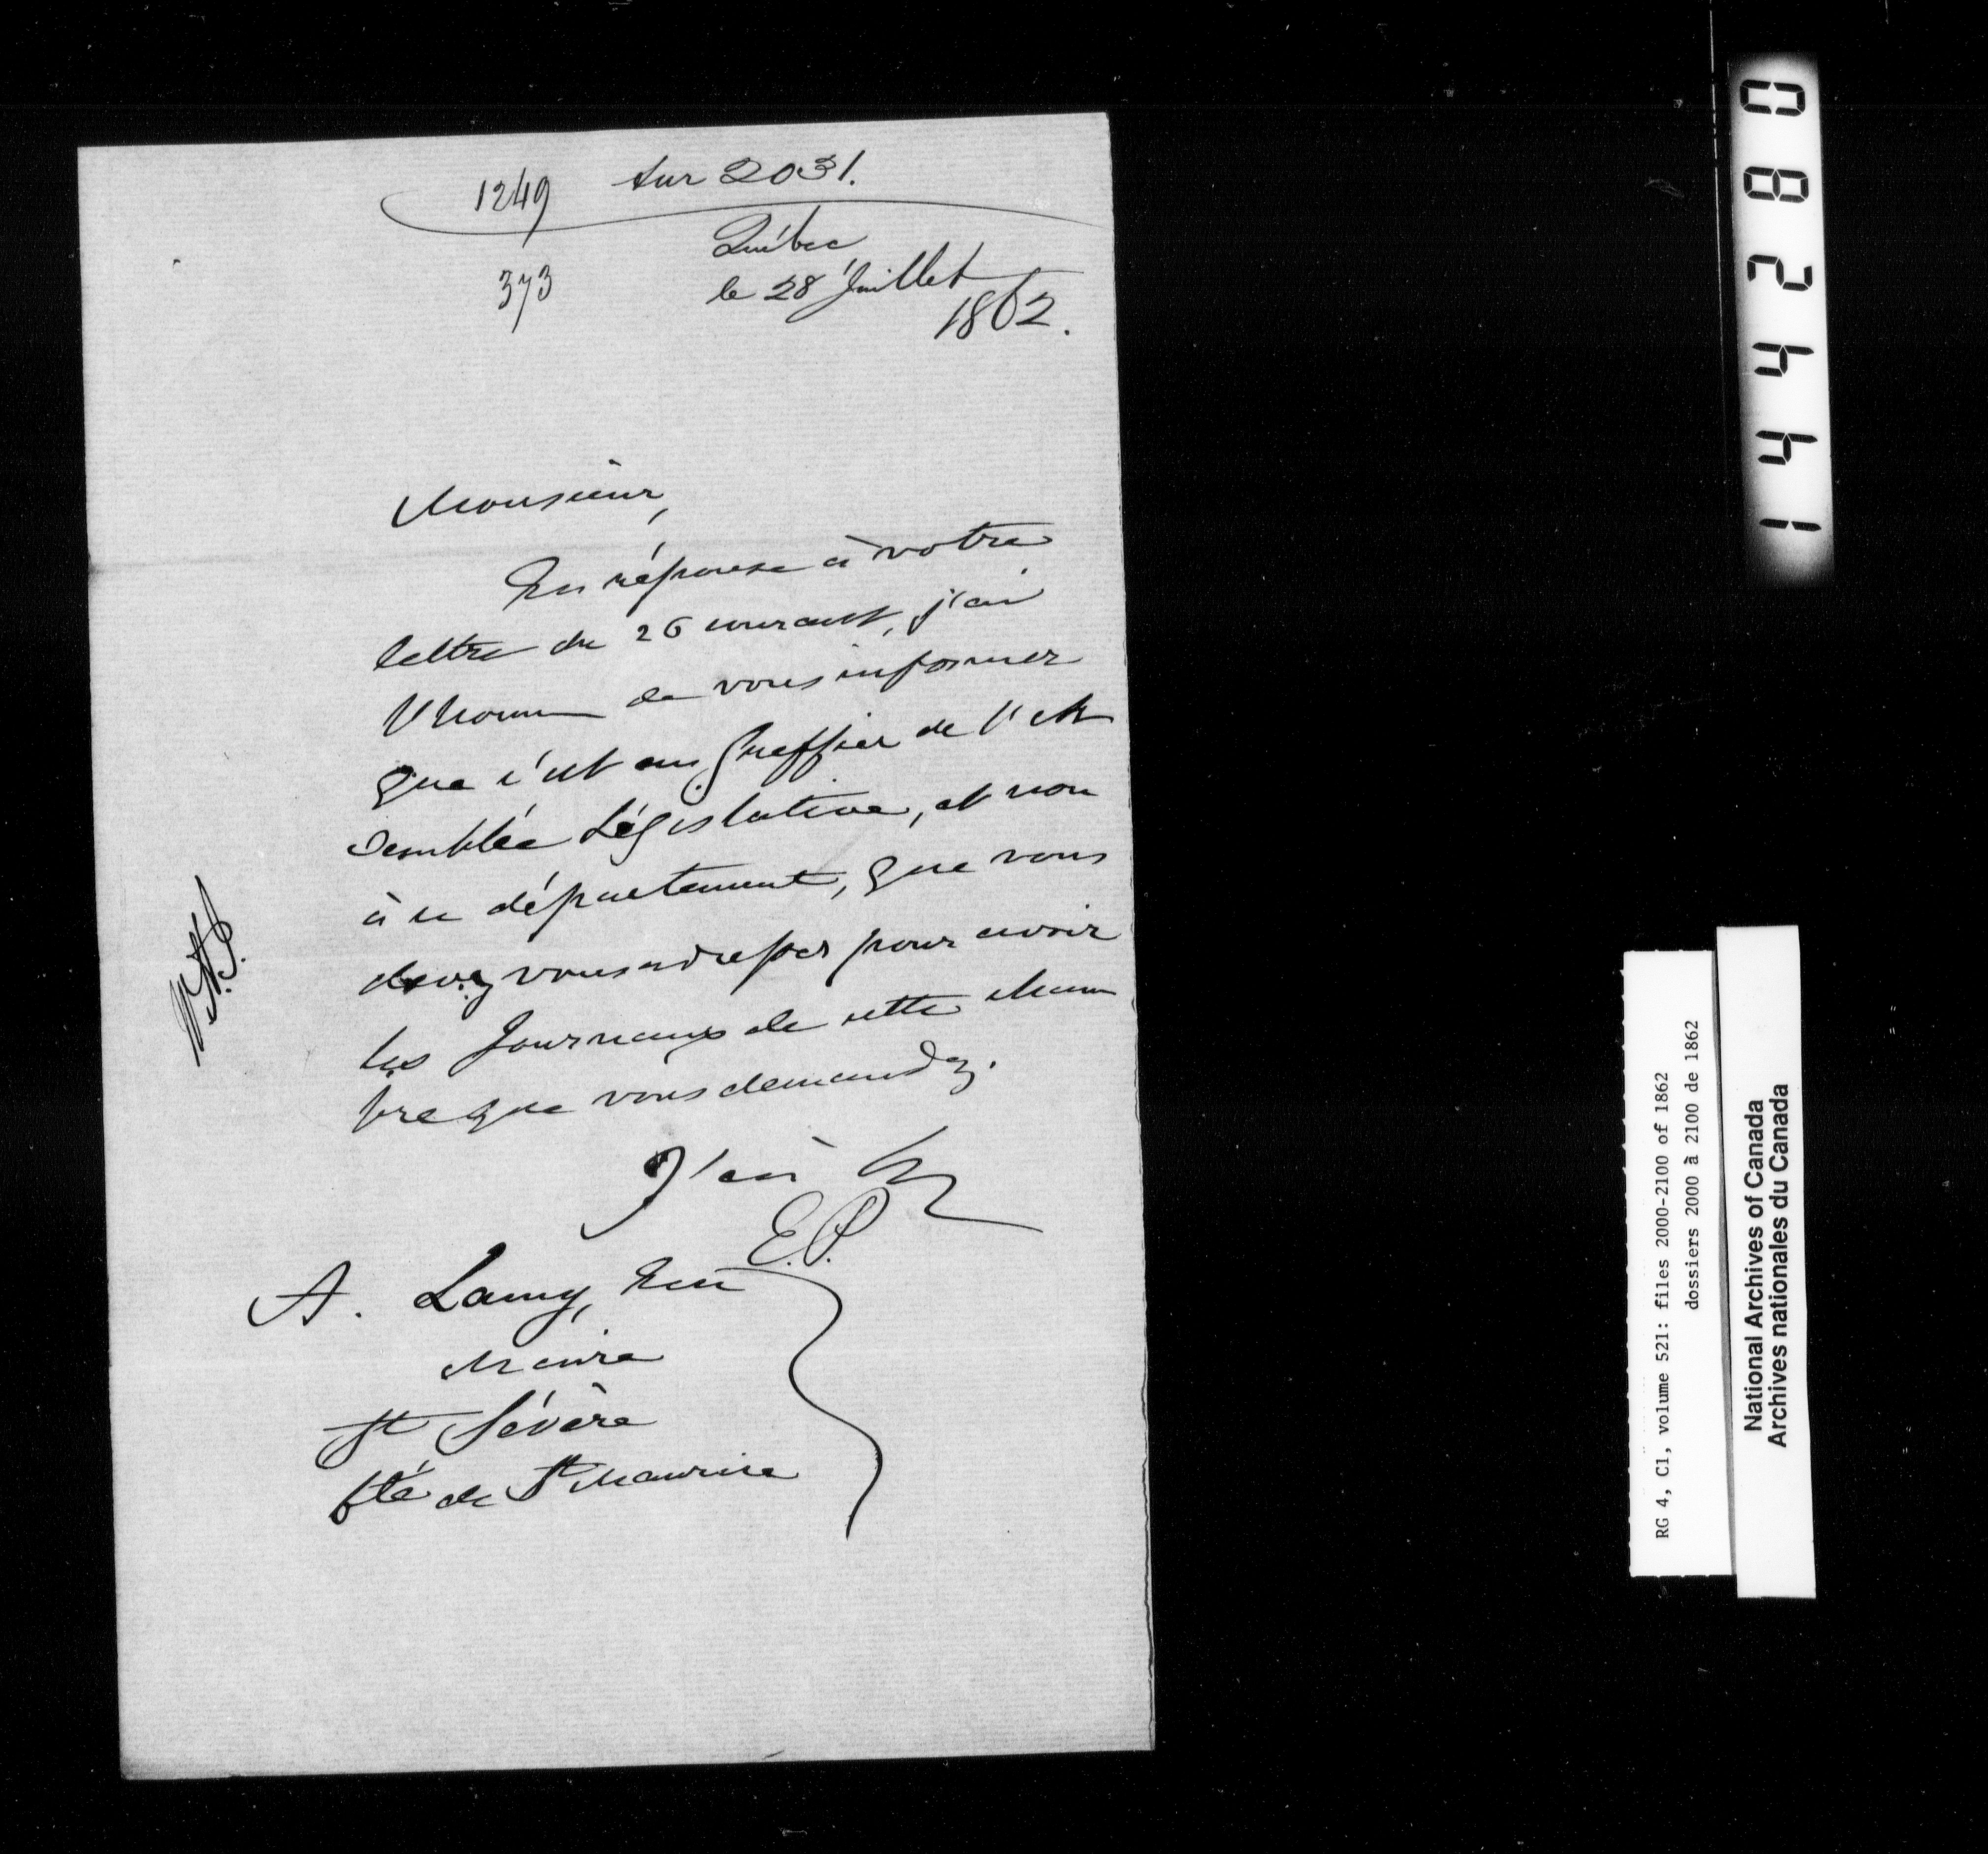 1249 sur 2031.
373
Québec
le 28 Juillet
1862.
Monsieur,
En réponse à votre
lettre du 26 courant, j'ai
l'honneur de vous informer
que c'est au Greffier de l'As
semblée Législative, et non
à ce département, que vous
devez vous adresser pour avoir
les Journaux de cette Cham
bre que vous demandez.
J'ai &c
E.P.
A. Lamy, Ecr
Maire
St Sévère
Cté de St Maurice
082441
RG 4, C1, volume 521: files 2000-2100 of 1862
dossiers 2000 à 2100 de 1862
National Archives of Canada
Archives nationales du Canada